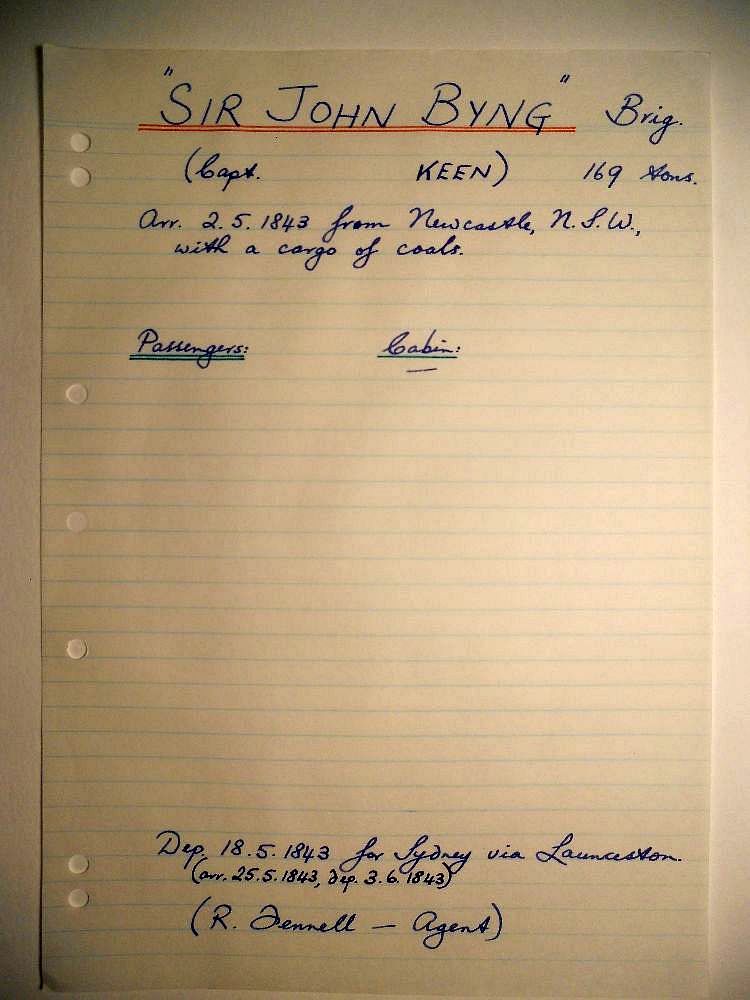 "SIR JOHN BYNG" Brig.
(Capt. KEEN) 169 tons.
Arr. 2.5.1843 from Newcastle, N.S.W.,
with a cargo of coals.
Passengers: Cabin:
—
Dep. 18.5.1843 for Sydney via Launceston.
(arr. 25.5.1843, dep. 3.6.1843)
(R. Fennell — Agent)